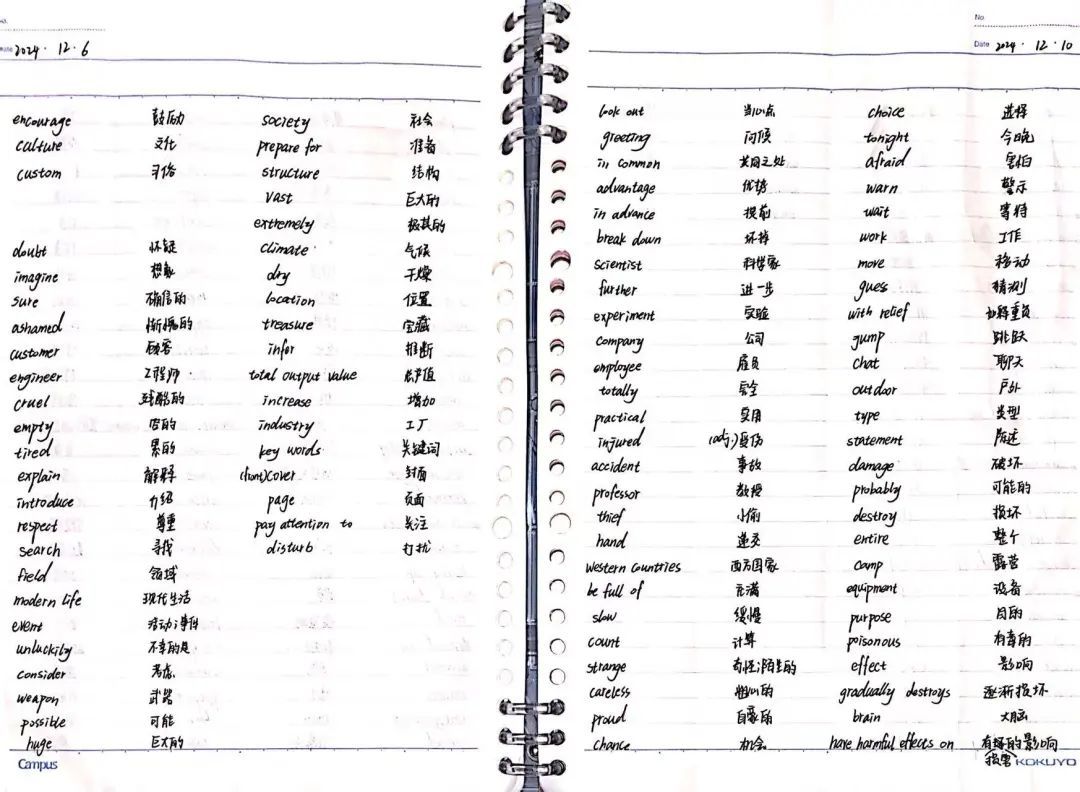 No.
Date 2024. 12. 6
encourage 鼓励 society 社会
culture 文化 prepare for 准备
custom 习俗 structure 结构
vast 巨大的
extremely 极其的
doubt 怀疑 climate 气候
imagine 想象 dry 干燥
sure 确信的 location 位置
ashamed 惭愧的 treasure 宝藏
customer 顾客 infer 推断
engineer 工程师 total output value 总产值
cruel 残酷的 increase 增加
empty 空的 industry 工厂
tired 累的 key words 关键词
explain 解释 (front)cover 封面
introduce 介绍 page 页面
respect 尊重 pay attention to 关注
search 寻找 disturb 打扰
field 领域
modern life 现代生活
event 活动;事件
unluckily 不幸的是
consider 考虑
weapon 武器
possible 可能
huge 巨大的
Campus
No.
Date 2024. 12. 10
look out 当心点 choice 选择
greeting 问候 tonight 今晚
in common 共同之处 afraid 害怕
advantage 优势 warn 警示
in advance 提前 wait 等待
break down 坏掉 work 工作
scientist 科学家 move 移动
further 进一步 guess 猜测
experiment 实验 with relief 如释重负
company 公司 gump 跳跃
employee 雇员 chat 聊天
totally 完全 outdoor 户外
practical 实用 type 类型
injured (adj.)受伤 statement 陈述
accident 事故 damage 破坏
professor 教授 probably 可能的
thief 小偷 destroy 损坏
hand 递交 entire 整个
western countries 西方国家 camp 露营
be full of 充满 equipment 设备
slow 缓慢 purpose 目的
count 计算 poisonous 有毒的
strange 奇怪;陌生的 effect 影响
careless 粗心的 gradually destroys 逐渐损坏
proud 自豪的 brain 大脑
chance 机会 have harmful effects on 有坏的影响
损害
KOKUYO